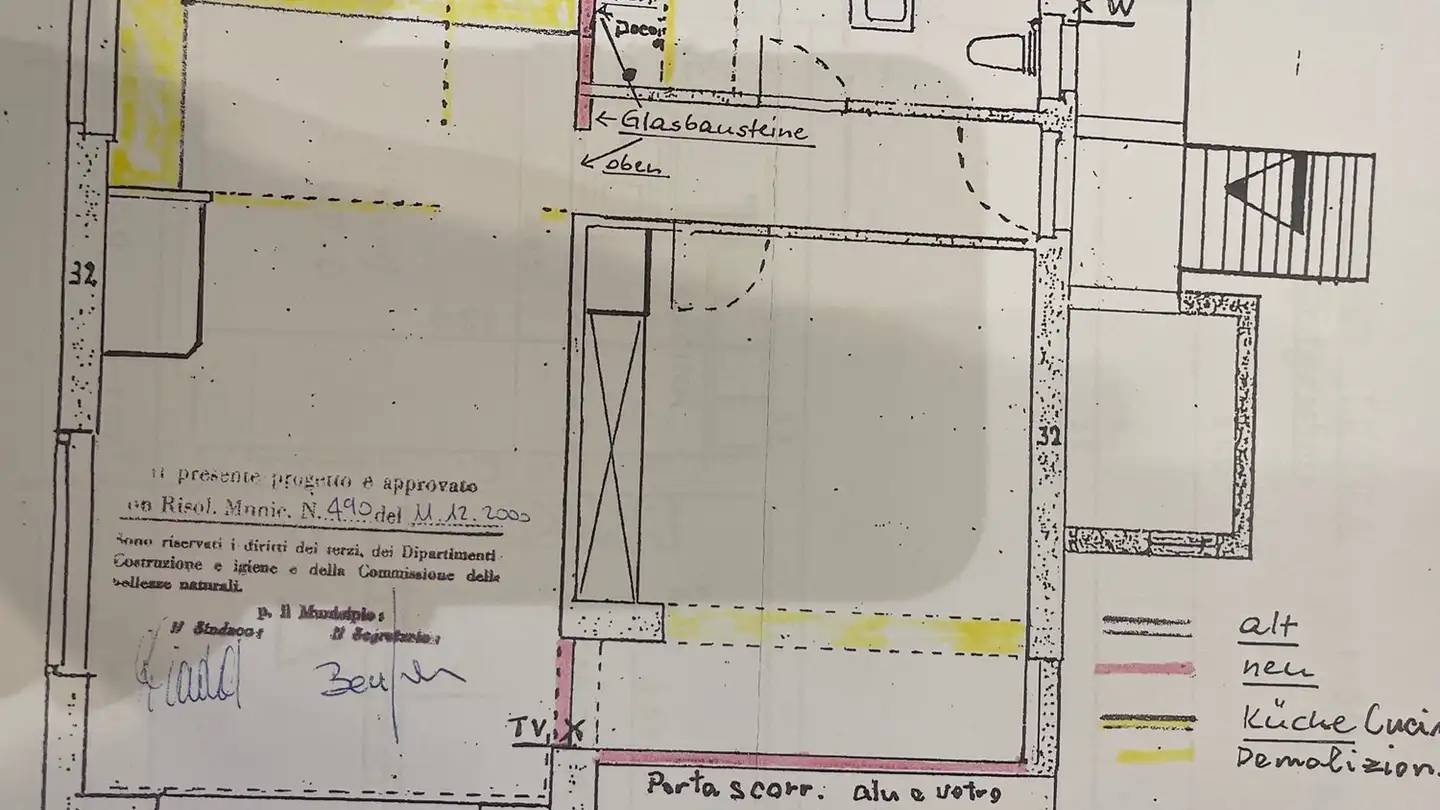 W
Glasbausteine
oben
32
32
presente progetto e approvato
Risol. Munic. N. 490 del 11.12.2000
Sono riservati i diritti dei terzi, dei Dipartimenti
Costruzione e igiene e della Commissione delle
bellezze naturali.
p. Il Municipio:
Il Sindaco: Il Segretario:
alt
neu
Küche
Demolizion.
TV, X
Porta scorr. alu e vetro